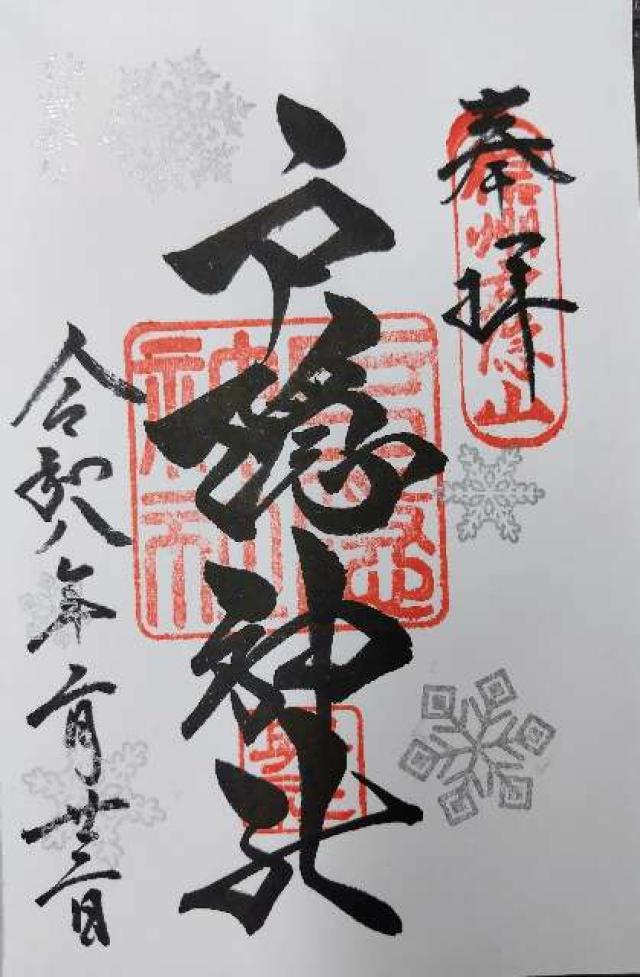 奉拝
信州戸隠山
戸隠神社
戸隠神社
奥社
令和八年二月廿三日